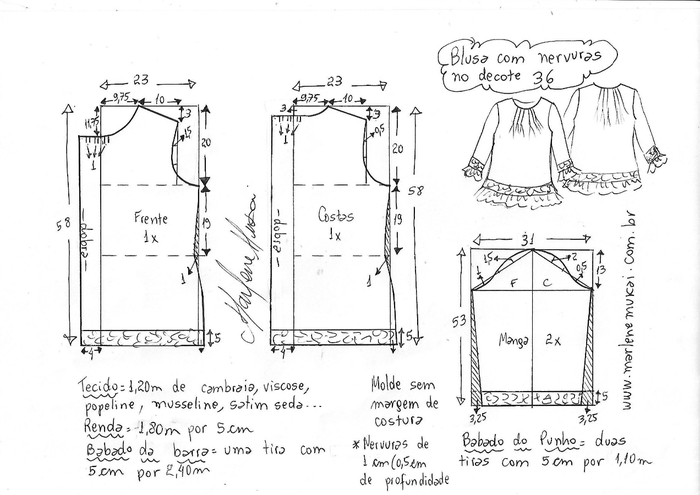 Blusa com nervuras
no decote 36
23
9,75
10
11,75
3
1,5
1
20
58
dobra
Frente
1x
19
1
5
4
Marlene Mukai
23
9,75
10
3
3
0,5
1
20
58
dobra
Costas
1x
19
1
5
4
31
1,5
2
1
0,5
13
F
C
53
Manga
2x
5
3,25
3,25
www.marlenemukai.com.br
Tecido=1,20m de cambraia, viscose,
popeline, musseline, satim seda...
Renda= 1,80m por 5cm
Babado da barra= uma tira com
5cm por 2,40m
Molde sem
margem de
costura
*Nervuras de
1cm(0,5cm
de profundidade
Babado do Punho= duas
tiras com 5cm por 1,10m